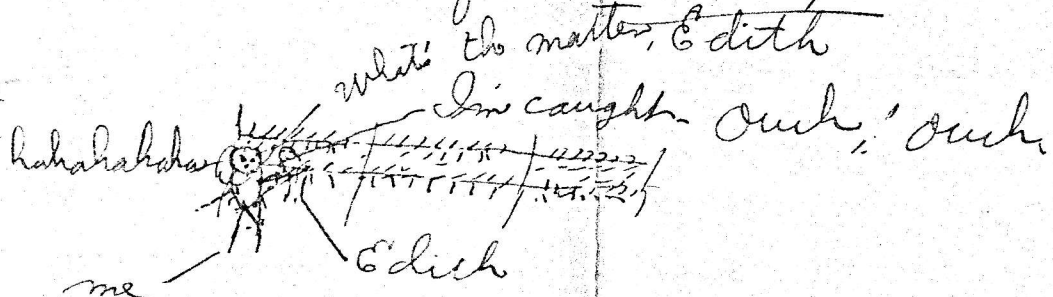 what's the matter, Edith
I'm caught. Ouch! Ouch.
hahahahaha
Edith
me